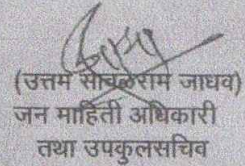 (उत्तम सावळेराम जाधव)
जन माहिती अधिकारी
तथा उपकुलसचिव